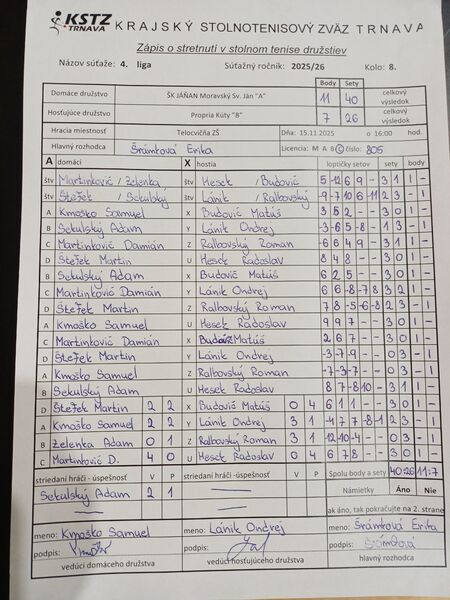 KSTZ TRNAVA KRAJSKÝ STOLNOTENISOVÝ ZVÄZ TRNAVA
Zápis o stretnutí v stolnom tenise družstiev
Názov súťaže: 4. liga Súťažný ročník: 2025/26 Kolo: 8.
Body Sety
Domáce družstvo ŠK JÁŇAN Moravský Sv. Ján "A" 11 40 celkový výsledok
Hosťujúce družstvo Propria Kúty "B" 7 26 celkový výsledok
Hracia miestnosť Telocvičňa ZŠ Dňa: 15.11.2025 o 16:00 hod.
Hlavný rozhodca Šrámková Erika Licencia: M A B C číslo: 805
A domáci X hostia loptičky setov sety body
štv Martinkovič / Zelenka štv Hesek / Budovič 5 -12 6 9 - 3 1 1 -
štv Štefek / Sekulský štv Lánik / Ralbovský -9 -7 10 6 -11 2 3 - 1
A Kmoško Samuel X Budovič Matúš 3 5 2 - - 3 0 1 -
B Sekulský Adam Y Lánik Ondrej -3 -6 5 -8 - 1 3 - 1
C Martinkovič Damián Z Ralbovský Roman -6 6 4 9 - 3 1 1 -
D Štefek Martin U Hesek Radoslav 8 4 8 - - 3 0 1 -
B Sekulský Adam X Budovič Matúš 6 2 5 - - 3 0 1 -
C Martinkovič Damián Y Lánik Ondrej 6 6 -8 -7 8 3 2 1 -
D Štefek Martin Z Ralbovský Roman 7 8 -5 -6 -8 2 3 - 1
A Kmoško Samuel U Hesek Radoslav 9 9 7 - - 3 0 1 -
C Martinkovič Damián X Budovič Matúš 2 6 7 - - 3 0 1 -
D Štefek Martin Y Lánik Ondrej -3 -7 -9 - - 0 3 - 1
A Kmoško Samuel Z Ralbovský Roman -7 -3 -7 - - 0 3 - 1
B Sekulský Adam U Hesek Radoslav 8 7 -8 10 - 3 1 1 -
D Štefek Martin 2 2 X Budovič Matúš 0 4 6 1 1 - - 3 0 1 -
A Kmoško Samuel 2 2 Y Lánik Ondrej 3 1 -4 7 7 -8 -1 2 3 - 1
B Zelenka Adam 0 1 Z Ralbovský Roman 3 1 -12 -10 -4 - - 0 3 - 1
C Martinkovič D. 4 0 U Hesek Radoslav 0 4 6 7 8 - - 3 0 1 -
striedaní hráči -úspešnosť V P striedaní hráči -úspešnosť V P Spolu body a sety 40:26 11:7
Sekulský Adam 2 1 Námietky Áno Nie
ak áno, tak pokračujte na 2. strane
meno: Kmoško Samuel meno: Lánik Ondrej meno: Šrámková Erika
podpis: podpis: podpis: Šrámková
vedúci domáceho družstva vedúci hosťujúceho družstva hlavný rozhodca